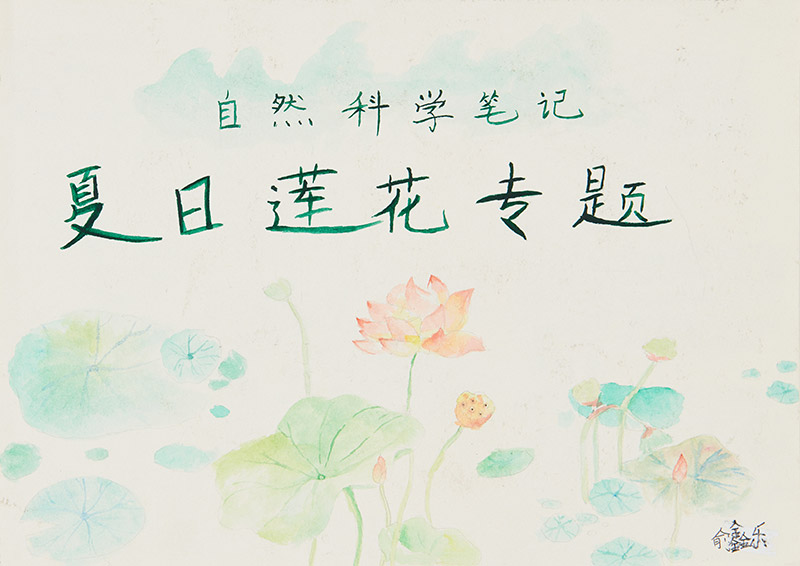 自然科学笔记
夏日莲花专题
俞鑫乐